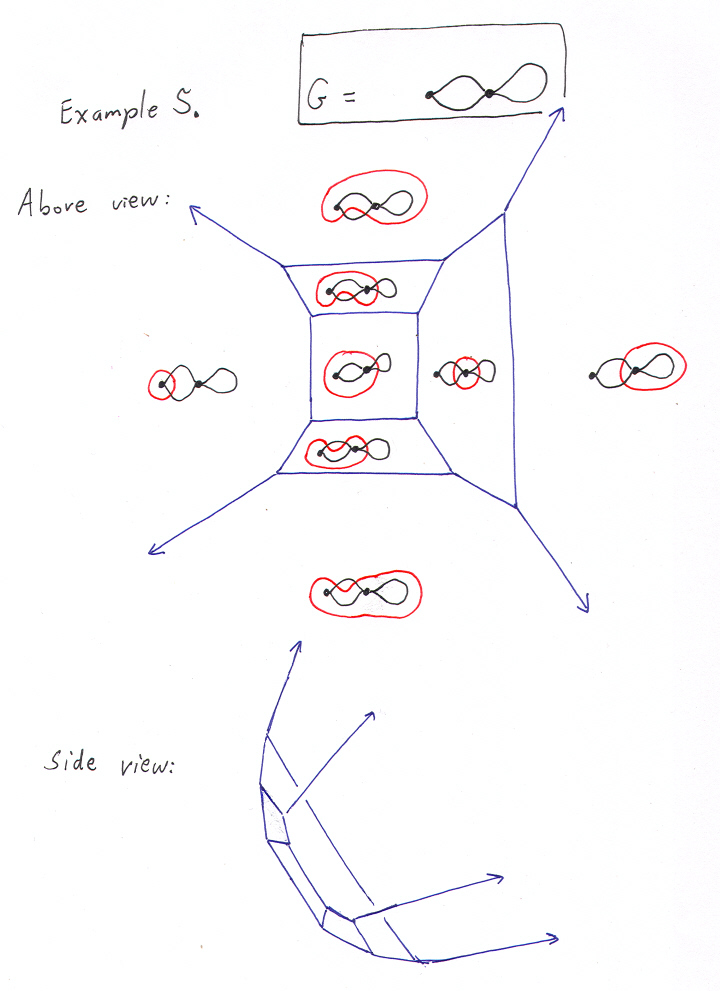 G =
Example 5.
Above view:
Side view: